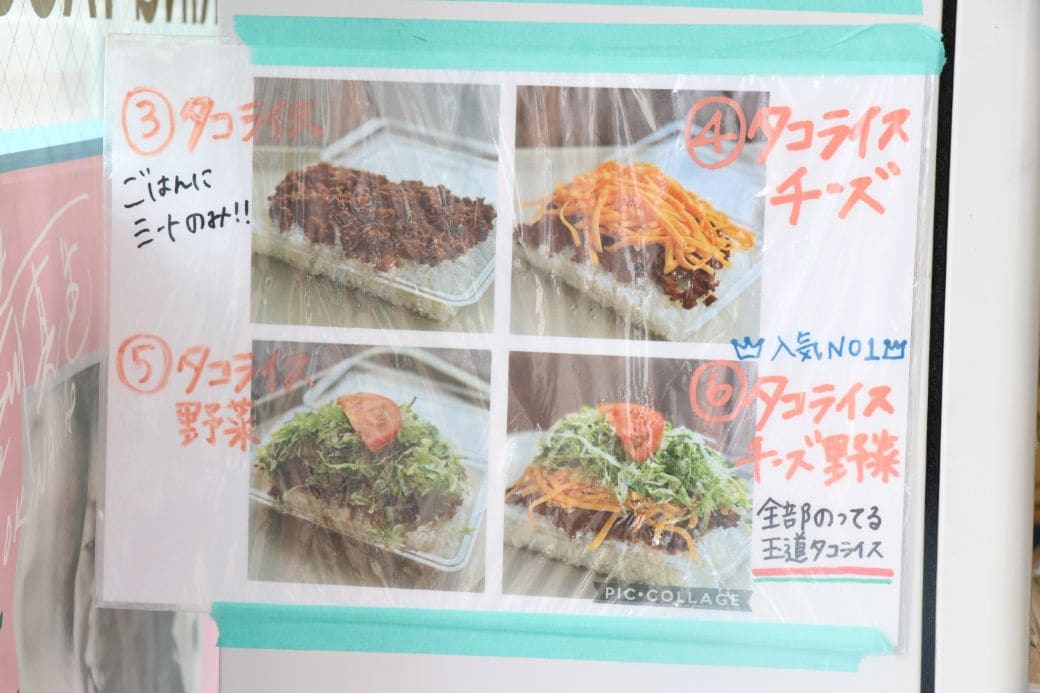 ③タコライス
ごはんに
ミートのみ!!
④タコライス
チーズ
⑤タコライス
野菜
人気NO1
⑥タコライス
チーズ野菜
全部のってる
王道タコライス
PIC•COLLAGE